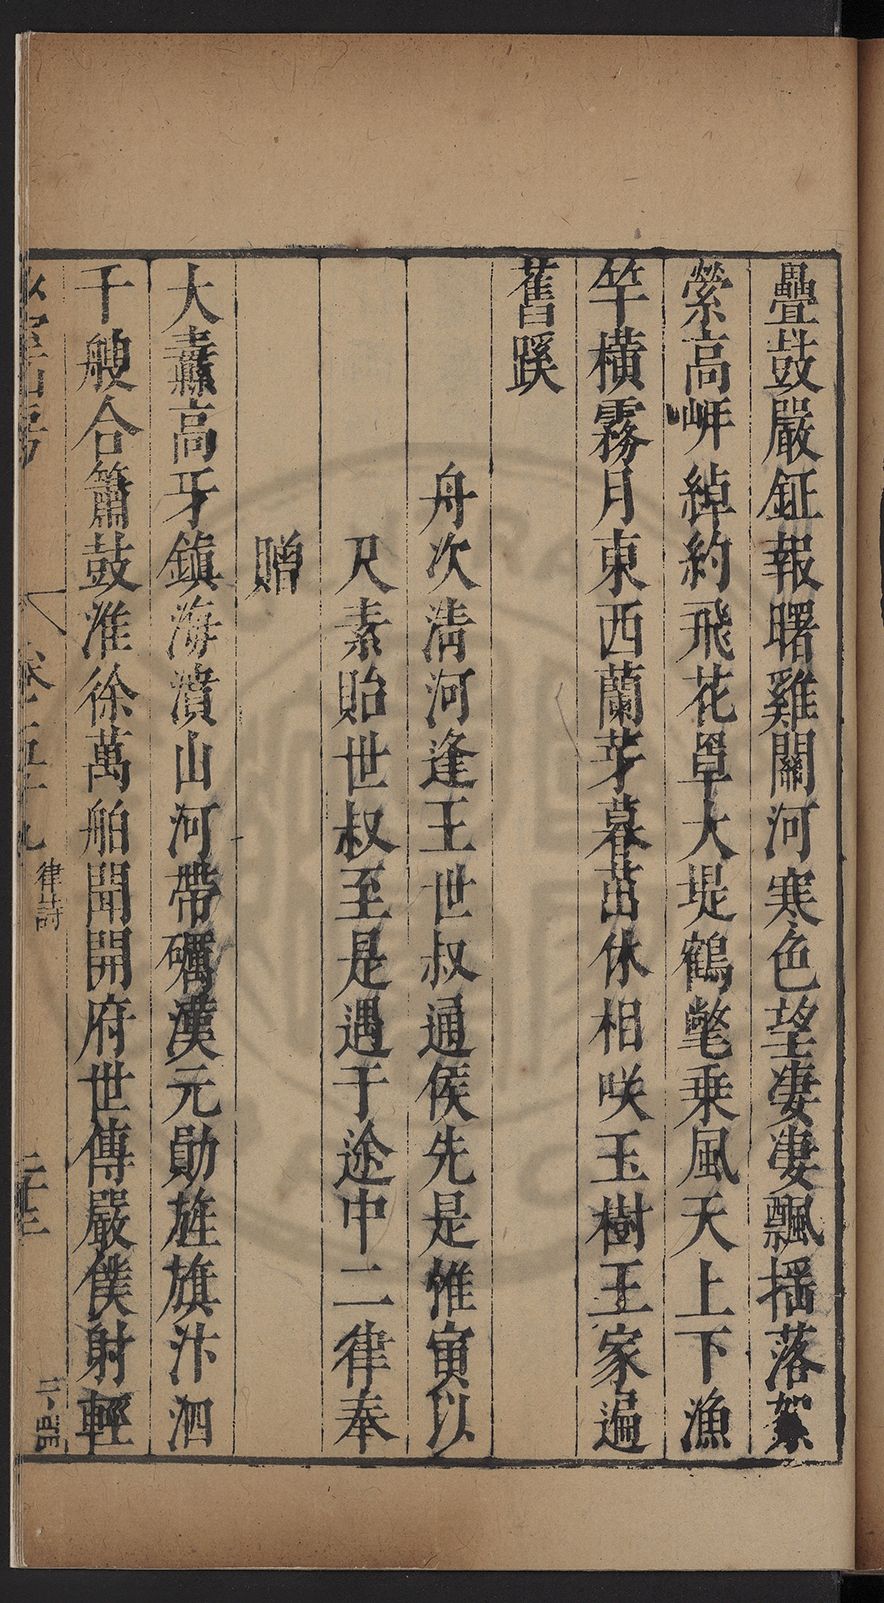 疊鼓嚴鉦報曙雞關河寒色望淒淒飄搖落絮
縈高岍綽約飛花單大堤鶴氅乗風天上下漁
竿橫霧月東西蘭芽暮茁休相咲玉樹王家遍
舊蹊
舟次淸河逢王世叔通侯先是惟寅以
尺素貽世叔至是遇于途中二律奉
贈
大纛高牙鎮海濆山河帶礪漢元勛旌旗汴泗
千艘合簫鼓淮徐萬舶聞開府世傳嚴僕射輕
卷五十九
律詩
二十三